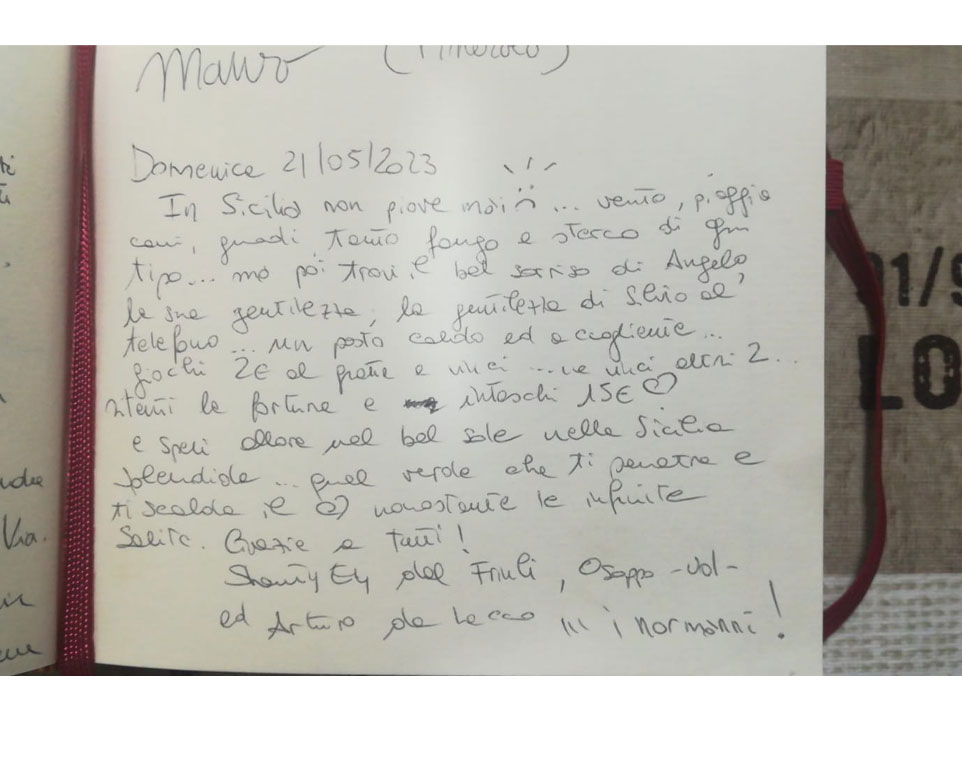 Mauro (Pinerolo)
Domenica 21/05/2023
In Sicilia non piove mai... vento, pioggia
cani, guadi, tanto fango e sterco di ogni
tipo... ma poi trovi il bel sorriso di Angelo,
la sua gentilezza, la gentilezza di Silvio al
telefono... un posto caldo ed accogliente...
giochi 2€ al gratta e vinci... ne vinci altri 2...
ritenti la fortuna e intaschi 15€ ♡
e speri allora nel bel sole nella Sicilia
splendida... quel verde che ti penetra e
ti scalda il ♡ nonostante le infinite
salite. Grazie a tutti!
Ely dal Friuli, Osoppo -Ud-
ed Arturo da Lecco ... i normanni!
Via.
01/9
LO